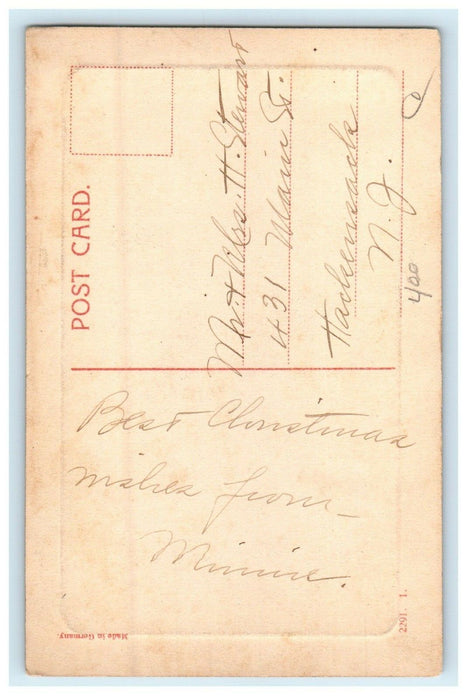 POST CARD.
Mr. + Mrs. H. Stewart
431 Main St.
Hackensack
N. J.
400
Best Christmas
wishes from –
Minnie.
Made in Germany.
2291. 1.